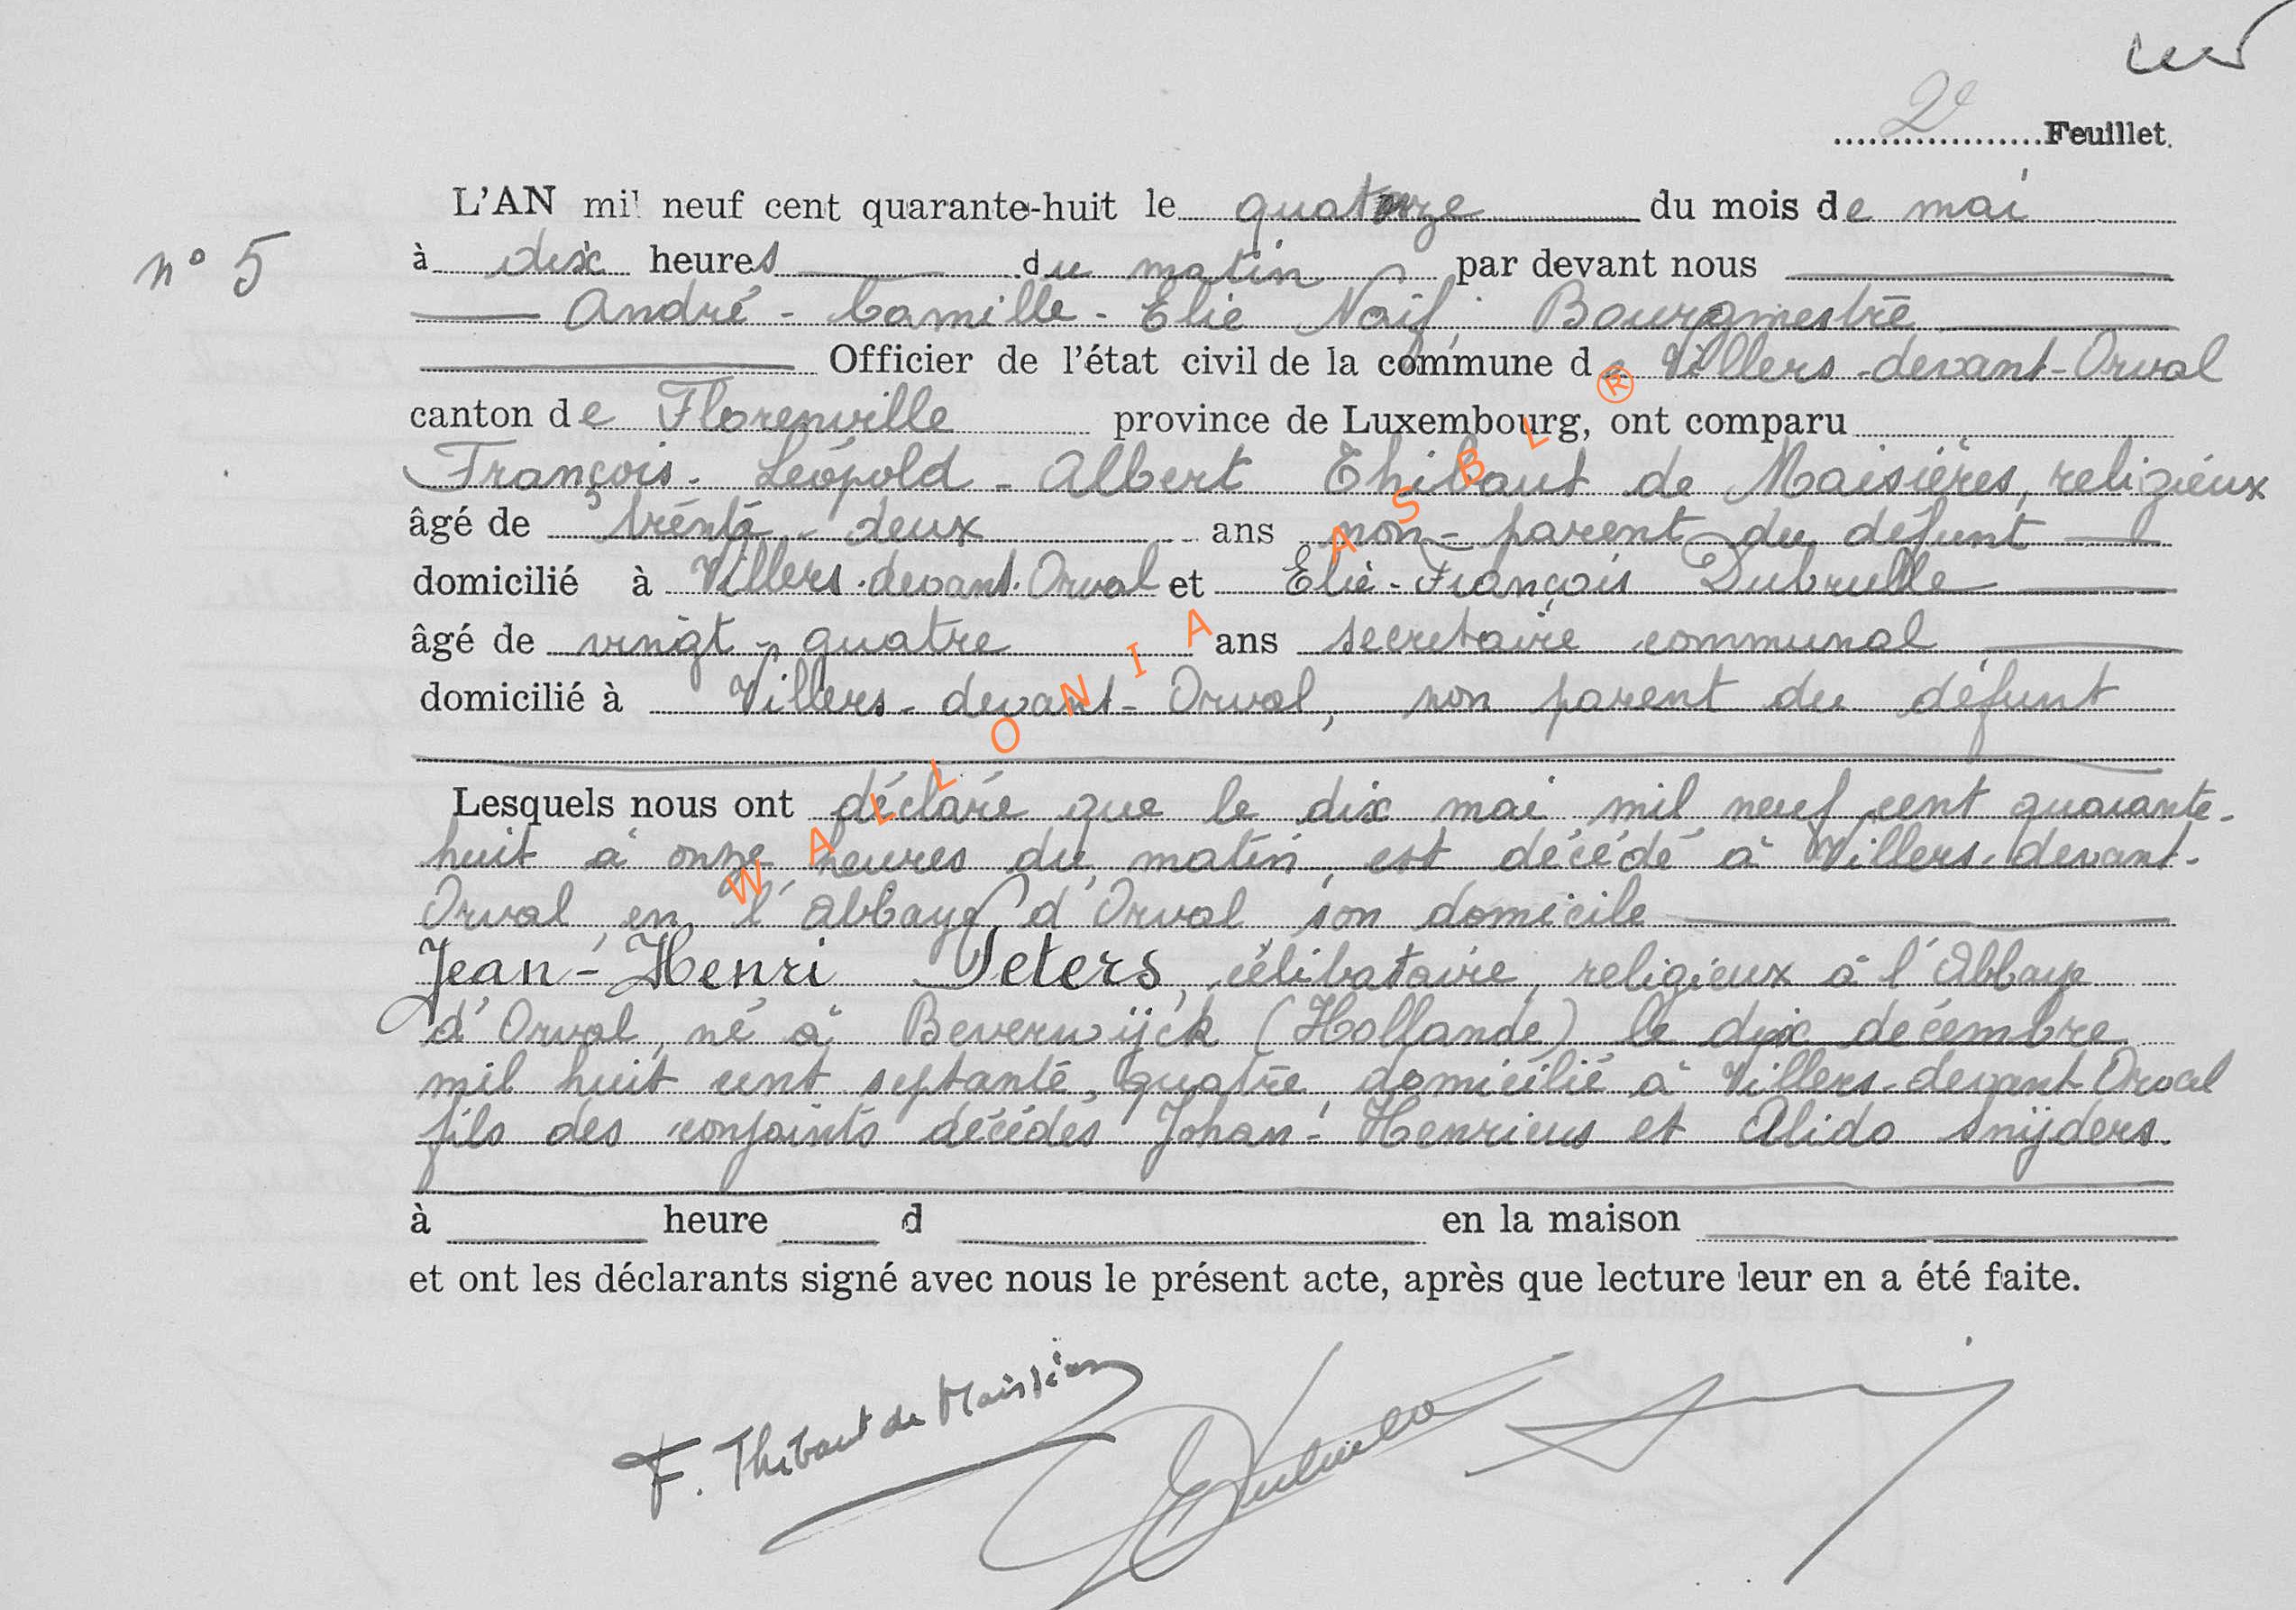 2e Feuillet.
L'AN mil neuf cent quarante-huit le quatorze du mois de mai
n° 5
à dix heures du matin par devant nous
André - Camille - Elie Naif, Bourgmestre
Officier de l'état civil de la commune de Villers-devant-Orval
canton de Florenville province de Luxembourg, ont comparu
François-Léopold-Albert Thibaut de Maisières, religieux
âgé de trente-deux ans non-parent du défunt
domicilié à Villers-devant-Orval et Elie-François Dubrulle
âgé de vingt-quatre ans secrétaire communal
domicilié à Villers-devant-Orval, non parent du défunt
Lesquels nous ont déclaré que le dix mai mil neuf cent quarante-
huit à onze heures du matin, est décédé à Villers-devant-
Orval, en l'abbaye d'Orval son domicile
Jean-Henri Peters, célibataire, religieux à l'Abbaye
d'Orval, né à Beverwijck (Hollande) le dix décembre
mil huit cent septante-quatre, domicilié à Villers-devant-Orval
fils des conjoints décédés Johan-Henricus et Alida Snijders.
à heure d en la maison
et ont les déclarants signé avec nous le présent acte, après que lecture leur en a été faite.
F. Thibaut de Maisières
WALLONIA ASBL ®